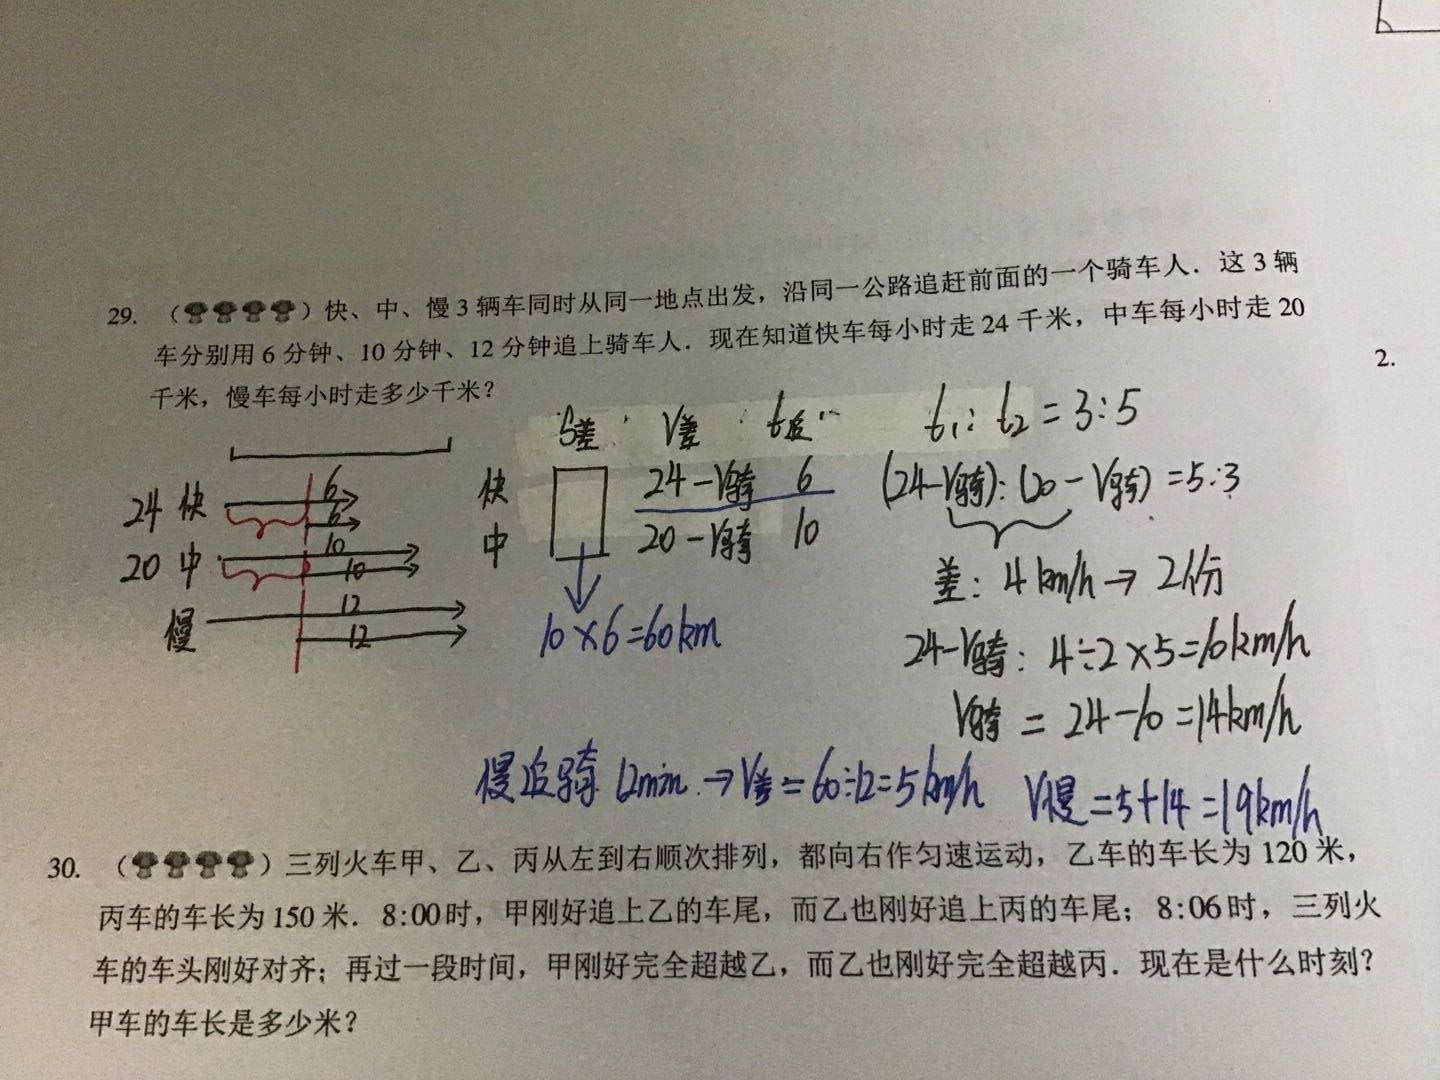 29. （）快、中、慢 3 辆车同时从同一地点出发，沿同一公路追赶前面的一个骑车人．这 3 辆
车分别用 6 分钟、10 分钟、12 分钟追上骑车人．现在知道快车每小时走 24 千米，中车每小时走 20
千米，慢车每小时走多少千米？
2.
S差 V差 t追
t₁: t₂ = 3:5
24 快 6
6
快 24-V骑 6
(24-V骑): (20-V骑) = 5:3
20 中 10
10
中 20-V骑 10
差: 4km/h → 2份
慢 12
12
10×6=60km
24-V骑: 4÷2×5=10km/h
V骑 = 24-10=14km/h
慢追骑 12min → V差=60÷12=5km/h V慢=5+14=19km/h
30. （）三列火车甲、乙、丙从左到右顺次排列，都向右作匀速运动，乙车的车长为 120 米，
丙车的车长为 150 米．8:00 时，甲刚好追上乙的车尾，而乙也刚好追上丙的车尾；8:06 时，三列火
车的车头刚好对齐；再过一段时间，甲刚好完全超越乙，而乙也刚好完全超越丙．现在是什么时刻？
甲车的车长是多少米？